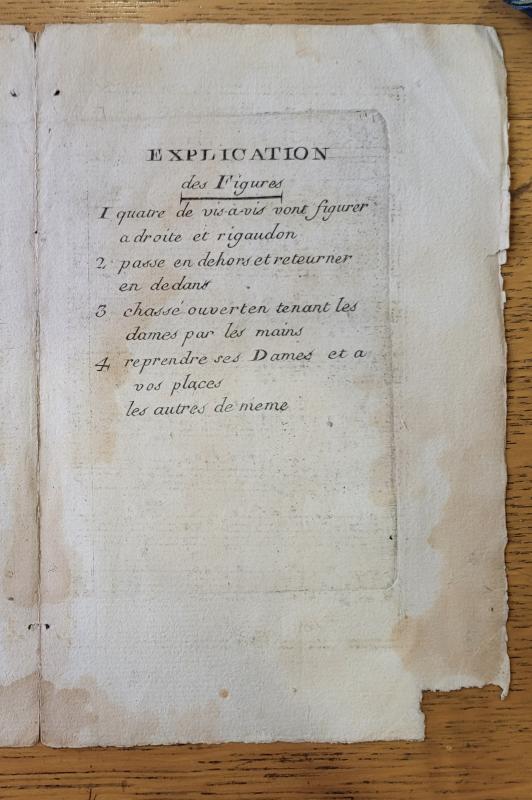 EXPLICATION
des Figures
1 quatre de vis-a-vis vont figurer
a droite et rigaudon
2 passe en dehors et reteurner
en dedans
3 chassé ouvert en tenant les
dames par les mains
4 reprendre ses Dames et a
vos places
les autres de meme